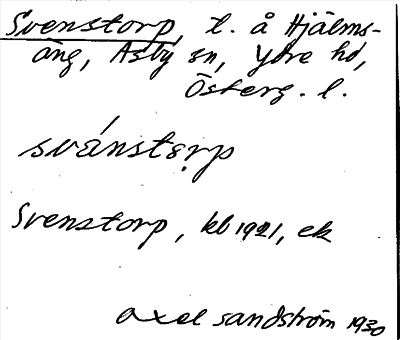 Svenstorp, t. å Hjälms-
äng, Asby sn, Ydre hd,
Österg. l.
svánstɛrp
Svenstorp, kb 1921, ek
Axel Sandström 1930